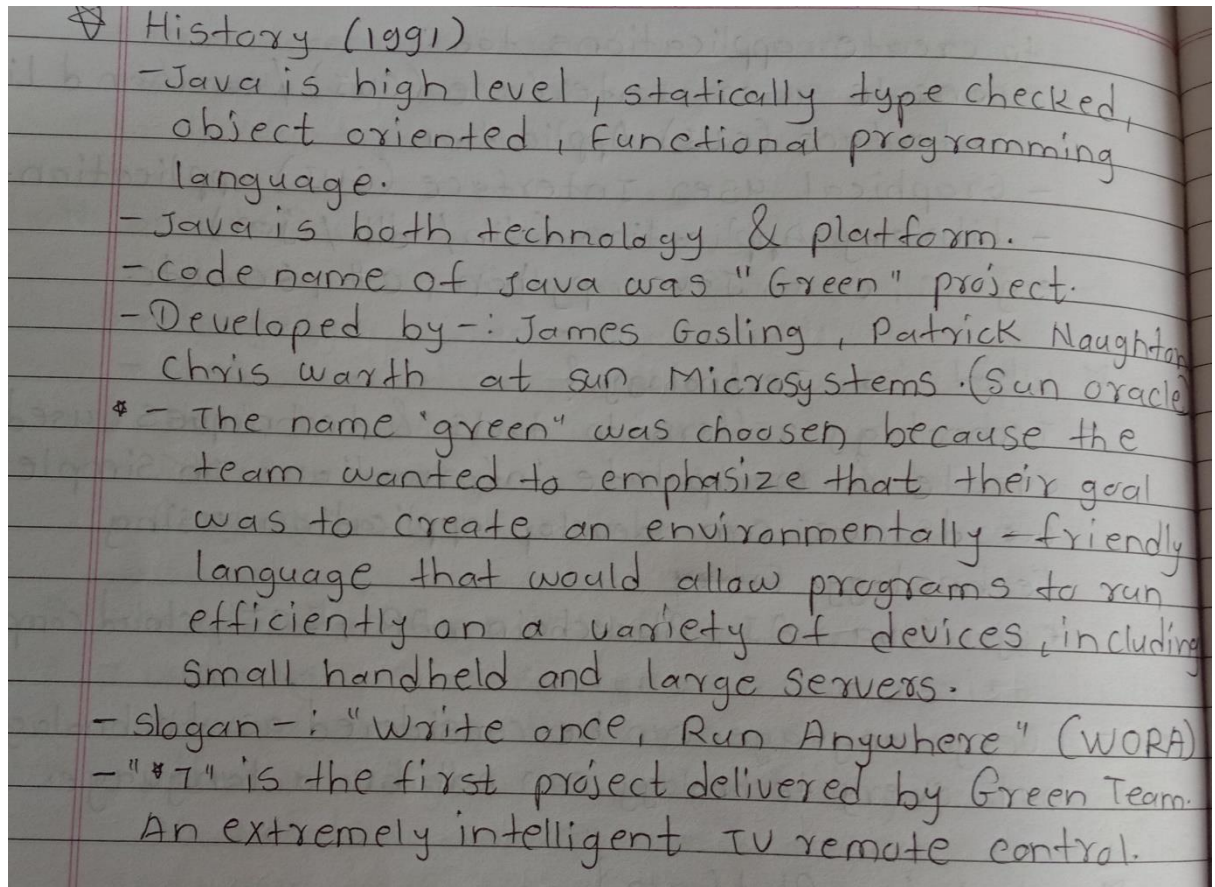 ☆ History (1991)
- Java is high level, statically type checked,
object oriented, Functional programming
language.
- Java is both technology & platform.
- code name of Java was "Green" project.
- Developed by -: James Gosling, Patrick Naughton
Chris warth at sun Microsystems. (Sun oracle)
* - The name "green" was choosen because the
team wanted to emphasize that their goal
was to create an environmentally - friendly
language that would allow programs to run
efficiently on a variety of devices, including
small handheld and large servers.
- slogan -: "Write once, Run Anywhere" (WORA)
- "*7" is the first project delivered by Green Team.
An extremely intelligent TV remote control.